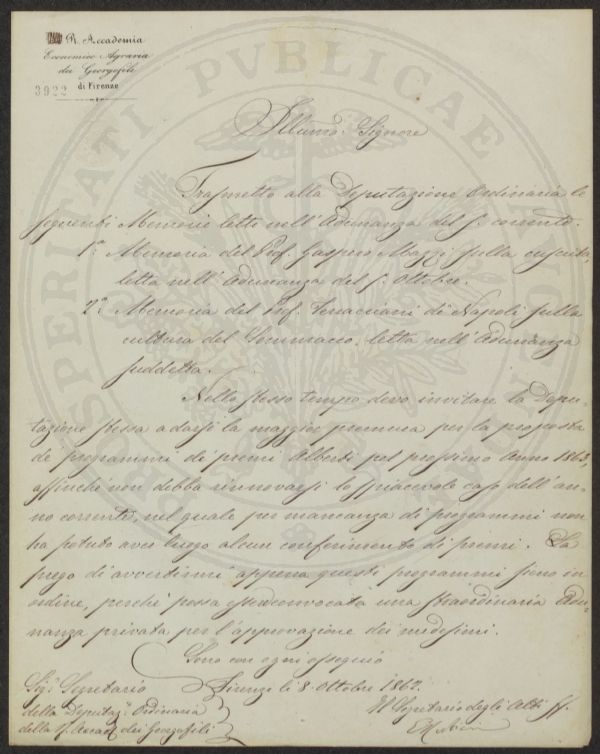 R. Accademia
Economico Agraria
dei Georgofili
di Firenze
3922
Illmo. Signore
Trasmetto alla Deputazione Ordinaria le
seguenti Memorie lette nell'Adunanza del 5. corrente.
1.a Memoria del Prof. Gaspero Mazzi sulla cuscuta,
letta nell'Adunanza del 5. Ottobre.
2.a Memoria del Prof. Terracciani di Napoli sulla
cultura del Sommacco, letta nell'Adunanza
suddetta.
Nello stesso tempo devo invitare la Depu-
tazione stessa a darsi la maggior premura per la proposta
de' programmi di premi Alberti pel prossimo anno 1863,
affinché non debba rinnovarsi lo spiacevole caso dell'an-
no corrente, nel quale per mancanza di programmi non
ha potuto aver luogo alcun conferimento di premi. La
prego di avvertirmi appena questi programmi sieno in
ordine, perché possa esser convocata una straordinaria Adu-
nanza privata per l'approvazione dei medesimi.
Sono con ogni ossequio
Firenze li 8. Ottobre 1862.
Sig.r Segretario
della Deputaz.e Ordinaria
della R. Accad. dei Georgofili
Il Segretario degli Atti ff.
PROSPERITATI PVBLICAE